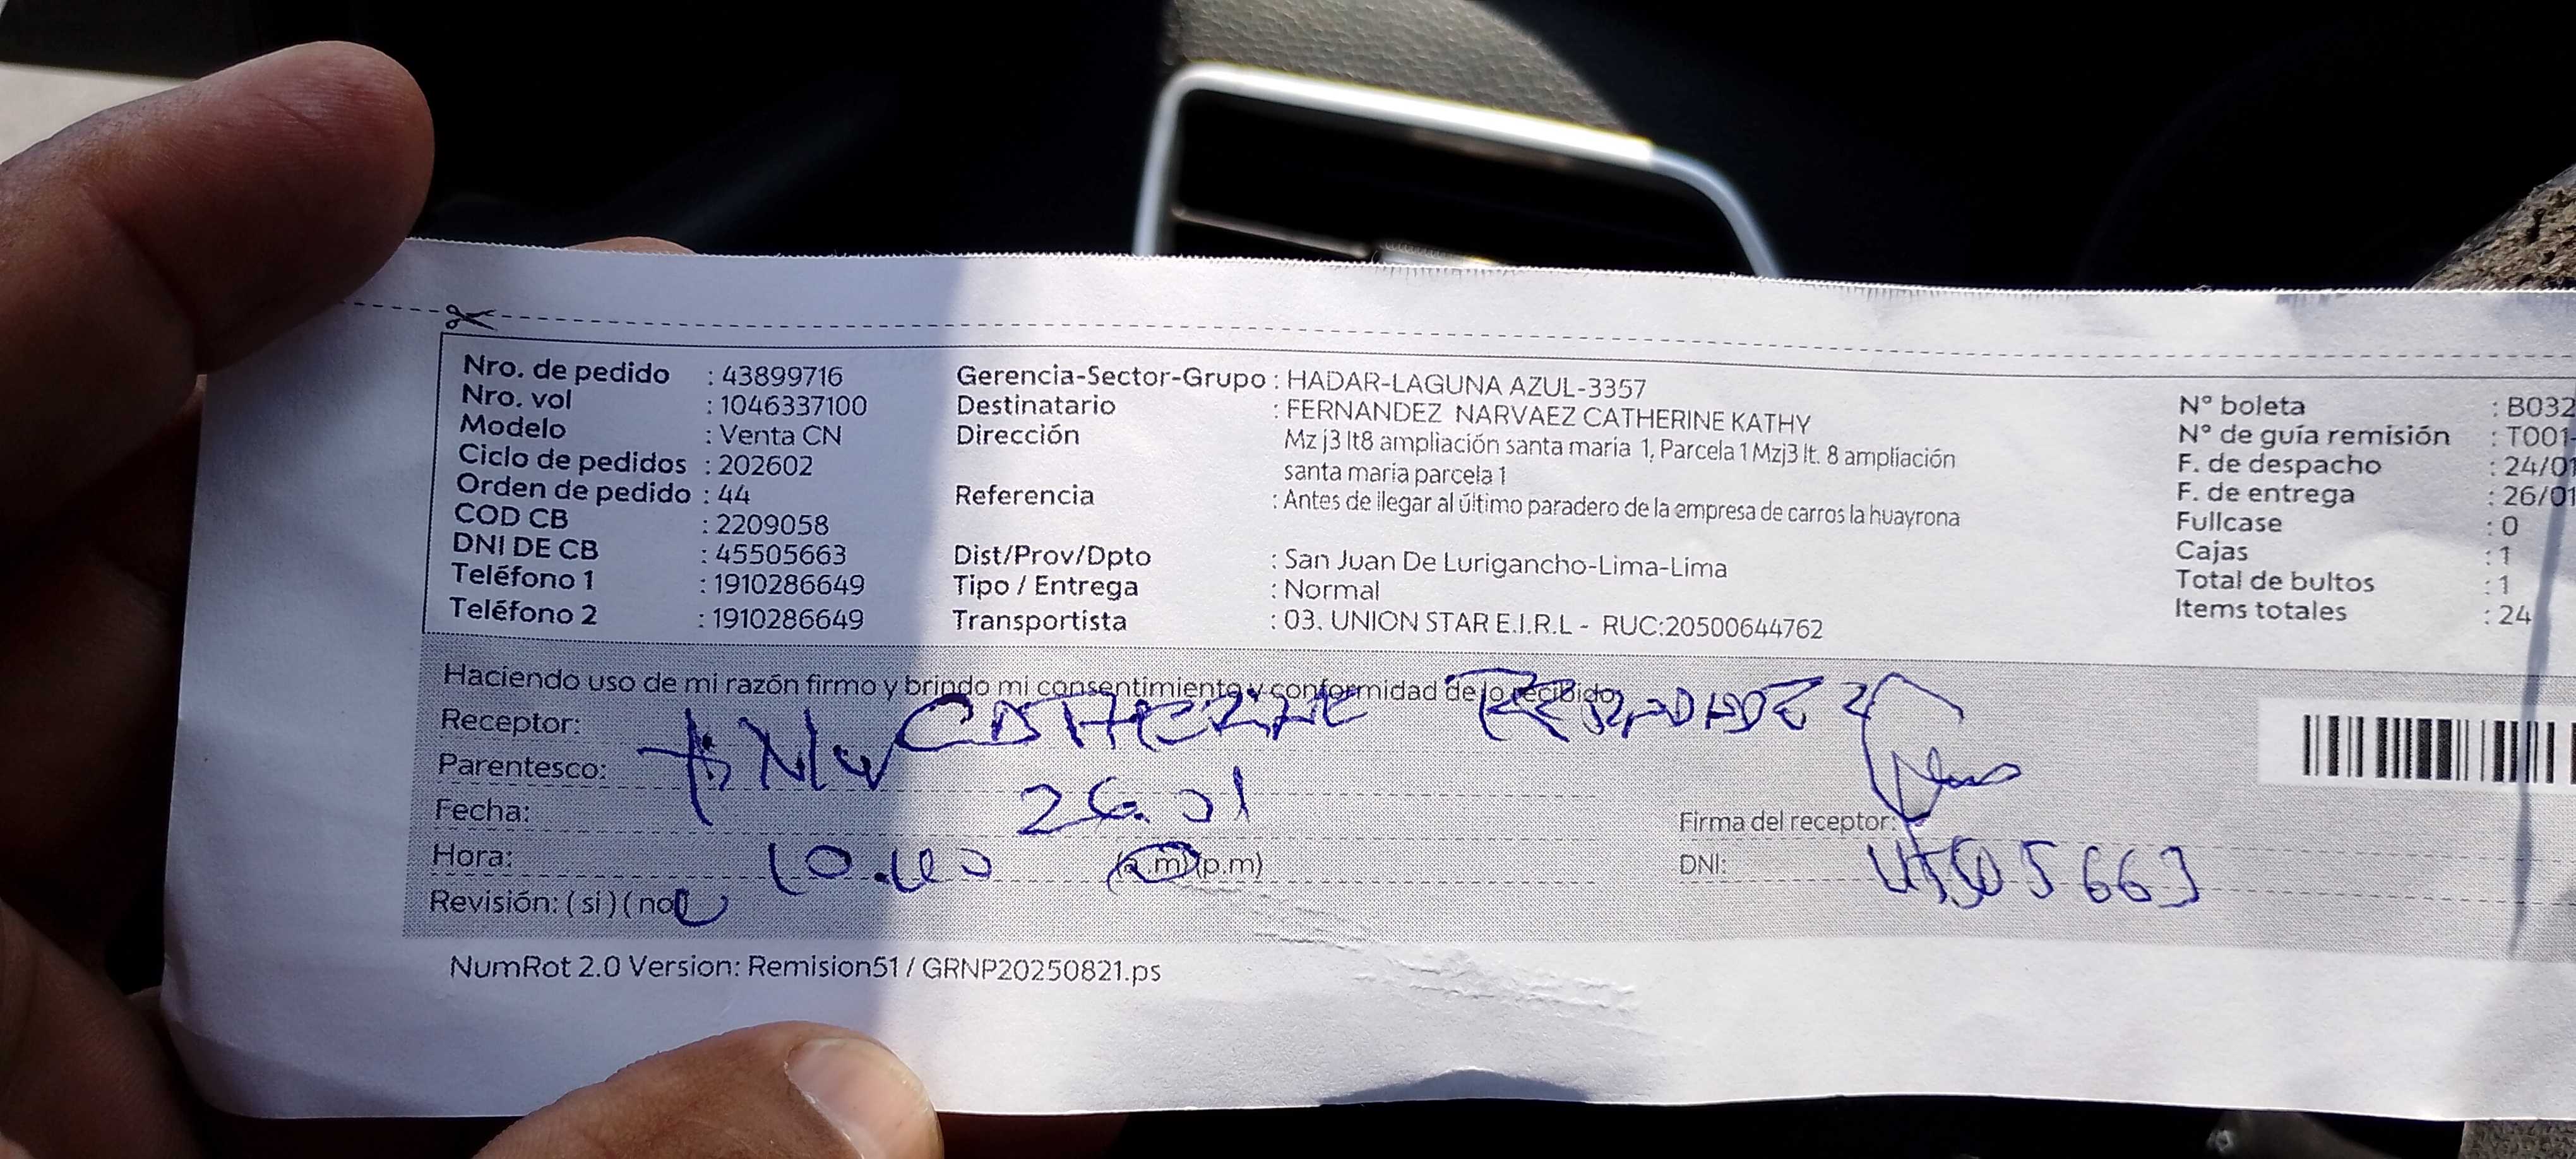 Nro. de pedido : 43899716
Nro. vol : 1046337100
Modelo : Venta CN
Ciclo de pedidos : 202602
Orden de pedido : 44
COD CB : 2209058
DNI DE CB : 45505663
Teléfono 1 : 1910286649
Teléfono 2 : 1910286649
Gerencia-Sector-Grupo : HADAR-LAGUNA AZUL-3357
Destinatario : FERNANDEZ NARVAEZ CATHERINE KATHY
Dirección Mz j3 lt8 ampliación santa maria 1, Parcela 1 Mzj3 lt. 8 ampliación
santa maria parcela 1
Referencia : Antes de llegar al último paradero de la empresa de carros la huayrona
Dist/Prov/Dpto : San Juan De Lurigancho-Lima-Lima
Tipo / Entrega : Normal
Transportista : 03. UNION STAR E.I.R.L - RUC:20500644762
N° boleta : B032
N° de guía remisión : T001-
F. de despacho : 24/01
F. de entrega : 26/01
Fullcase : 0
Cajas : 1
Total de bultos : 1
Items totales : 24
Haciendo uso de mi razón firmo y brindo mi consentimiento y conformidad de lo recibido
Receptor:
Parentesco:
Fecha: 26.01
Hora: 10.40 (a.m)(p.m)
Revisión: (si) (no)
Firma del receptor:
DNI: 45505663
NumRot 2.0 Version: Remision51 / GRNP20250821.ps